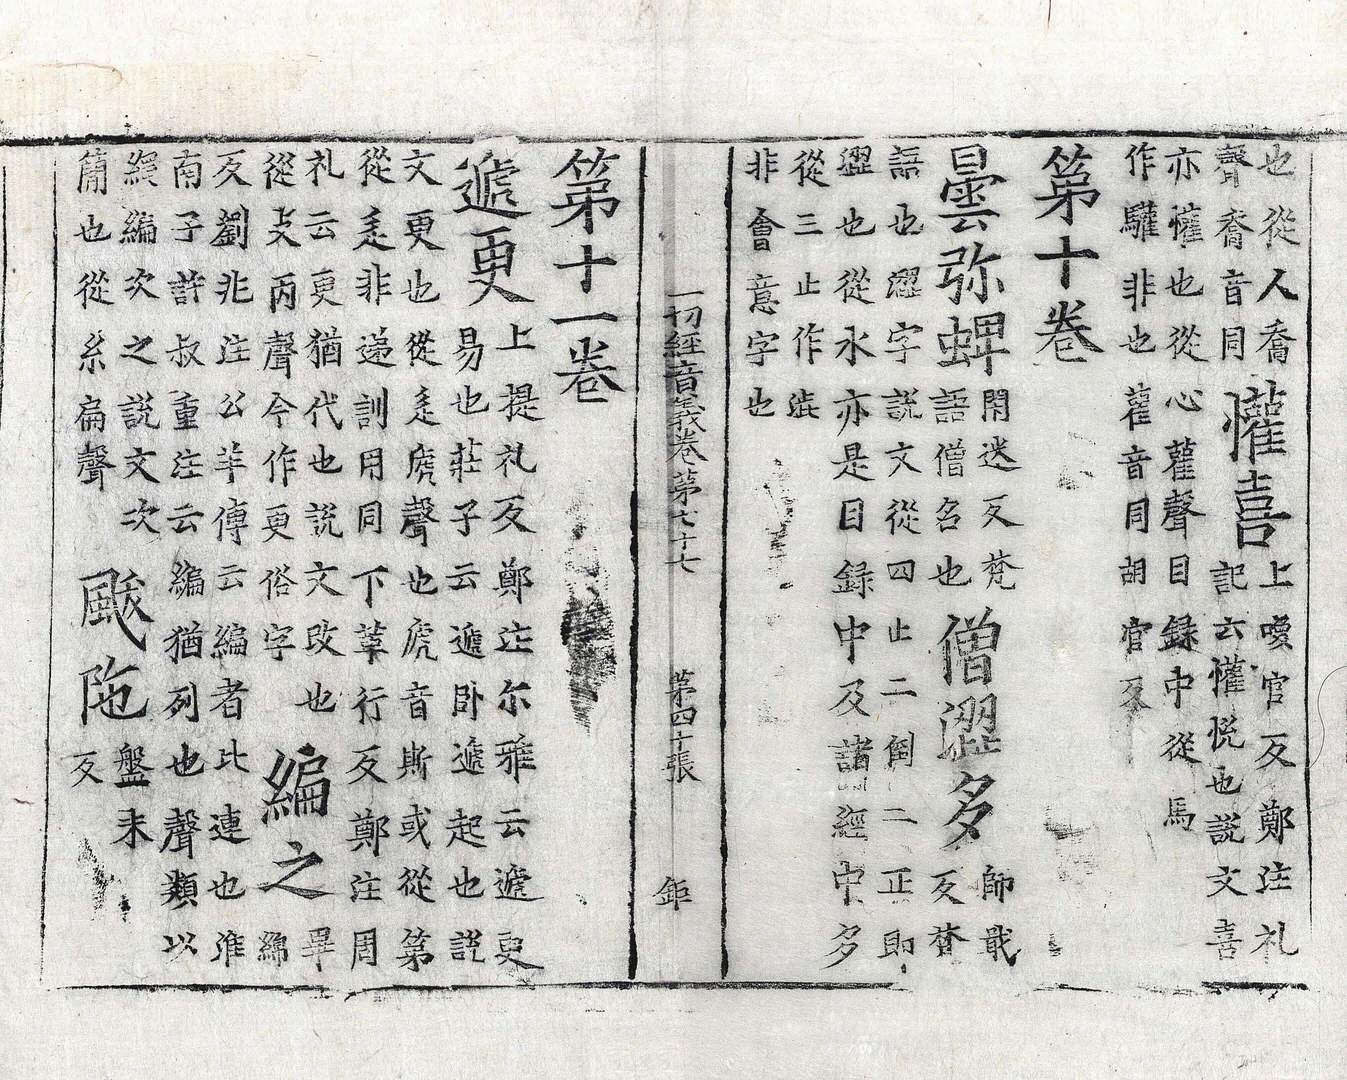 也從人喬
聲喬音同
懽喜
上喚官反鄭注礼
記云懽悅也說文喜
亦懽也從心雚聲目錄中從馬
作驩非也雚音同胡官反
第十卷
曇弥蜱
閇迷反梵
語僧名也
僧澀多
師戢
反梵
語也澀字說文從四止二倒二正即
澀也從水亦是目録中及諸經中多
從三止作澁
非會意字也
一切經音義卷第七十七
第四十張
鉅
第十一卷
遞更
上提礼反鄭注尔雅云遞更
易也莊子云遞卧遞起也說
文更也從辵虒聲也虒音斯或從第
從辵非遞訓用同下革行反鄭注周
礼云更猶代也說文改也
從攴丙聲今作更俗字
編之
畢綿
反劉兆注公羊傳云編者比連也淮
南子許叔重注云編猶列也聲類以
繩編次之說文次
簡也從糸扁聲
颰陁
盤末
反